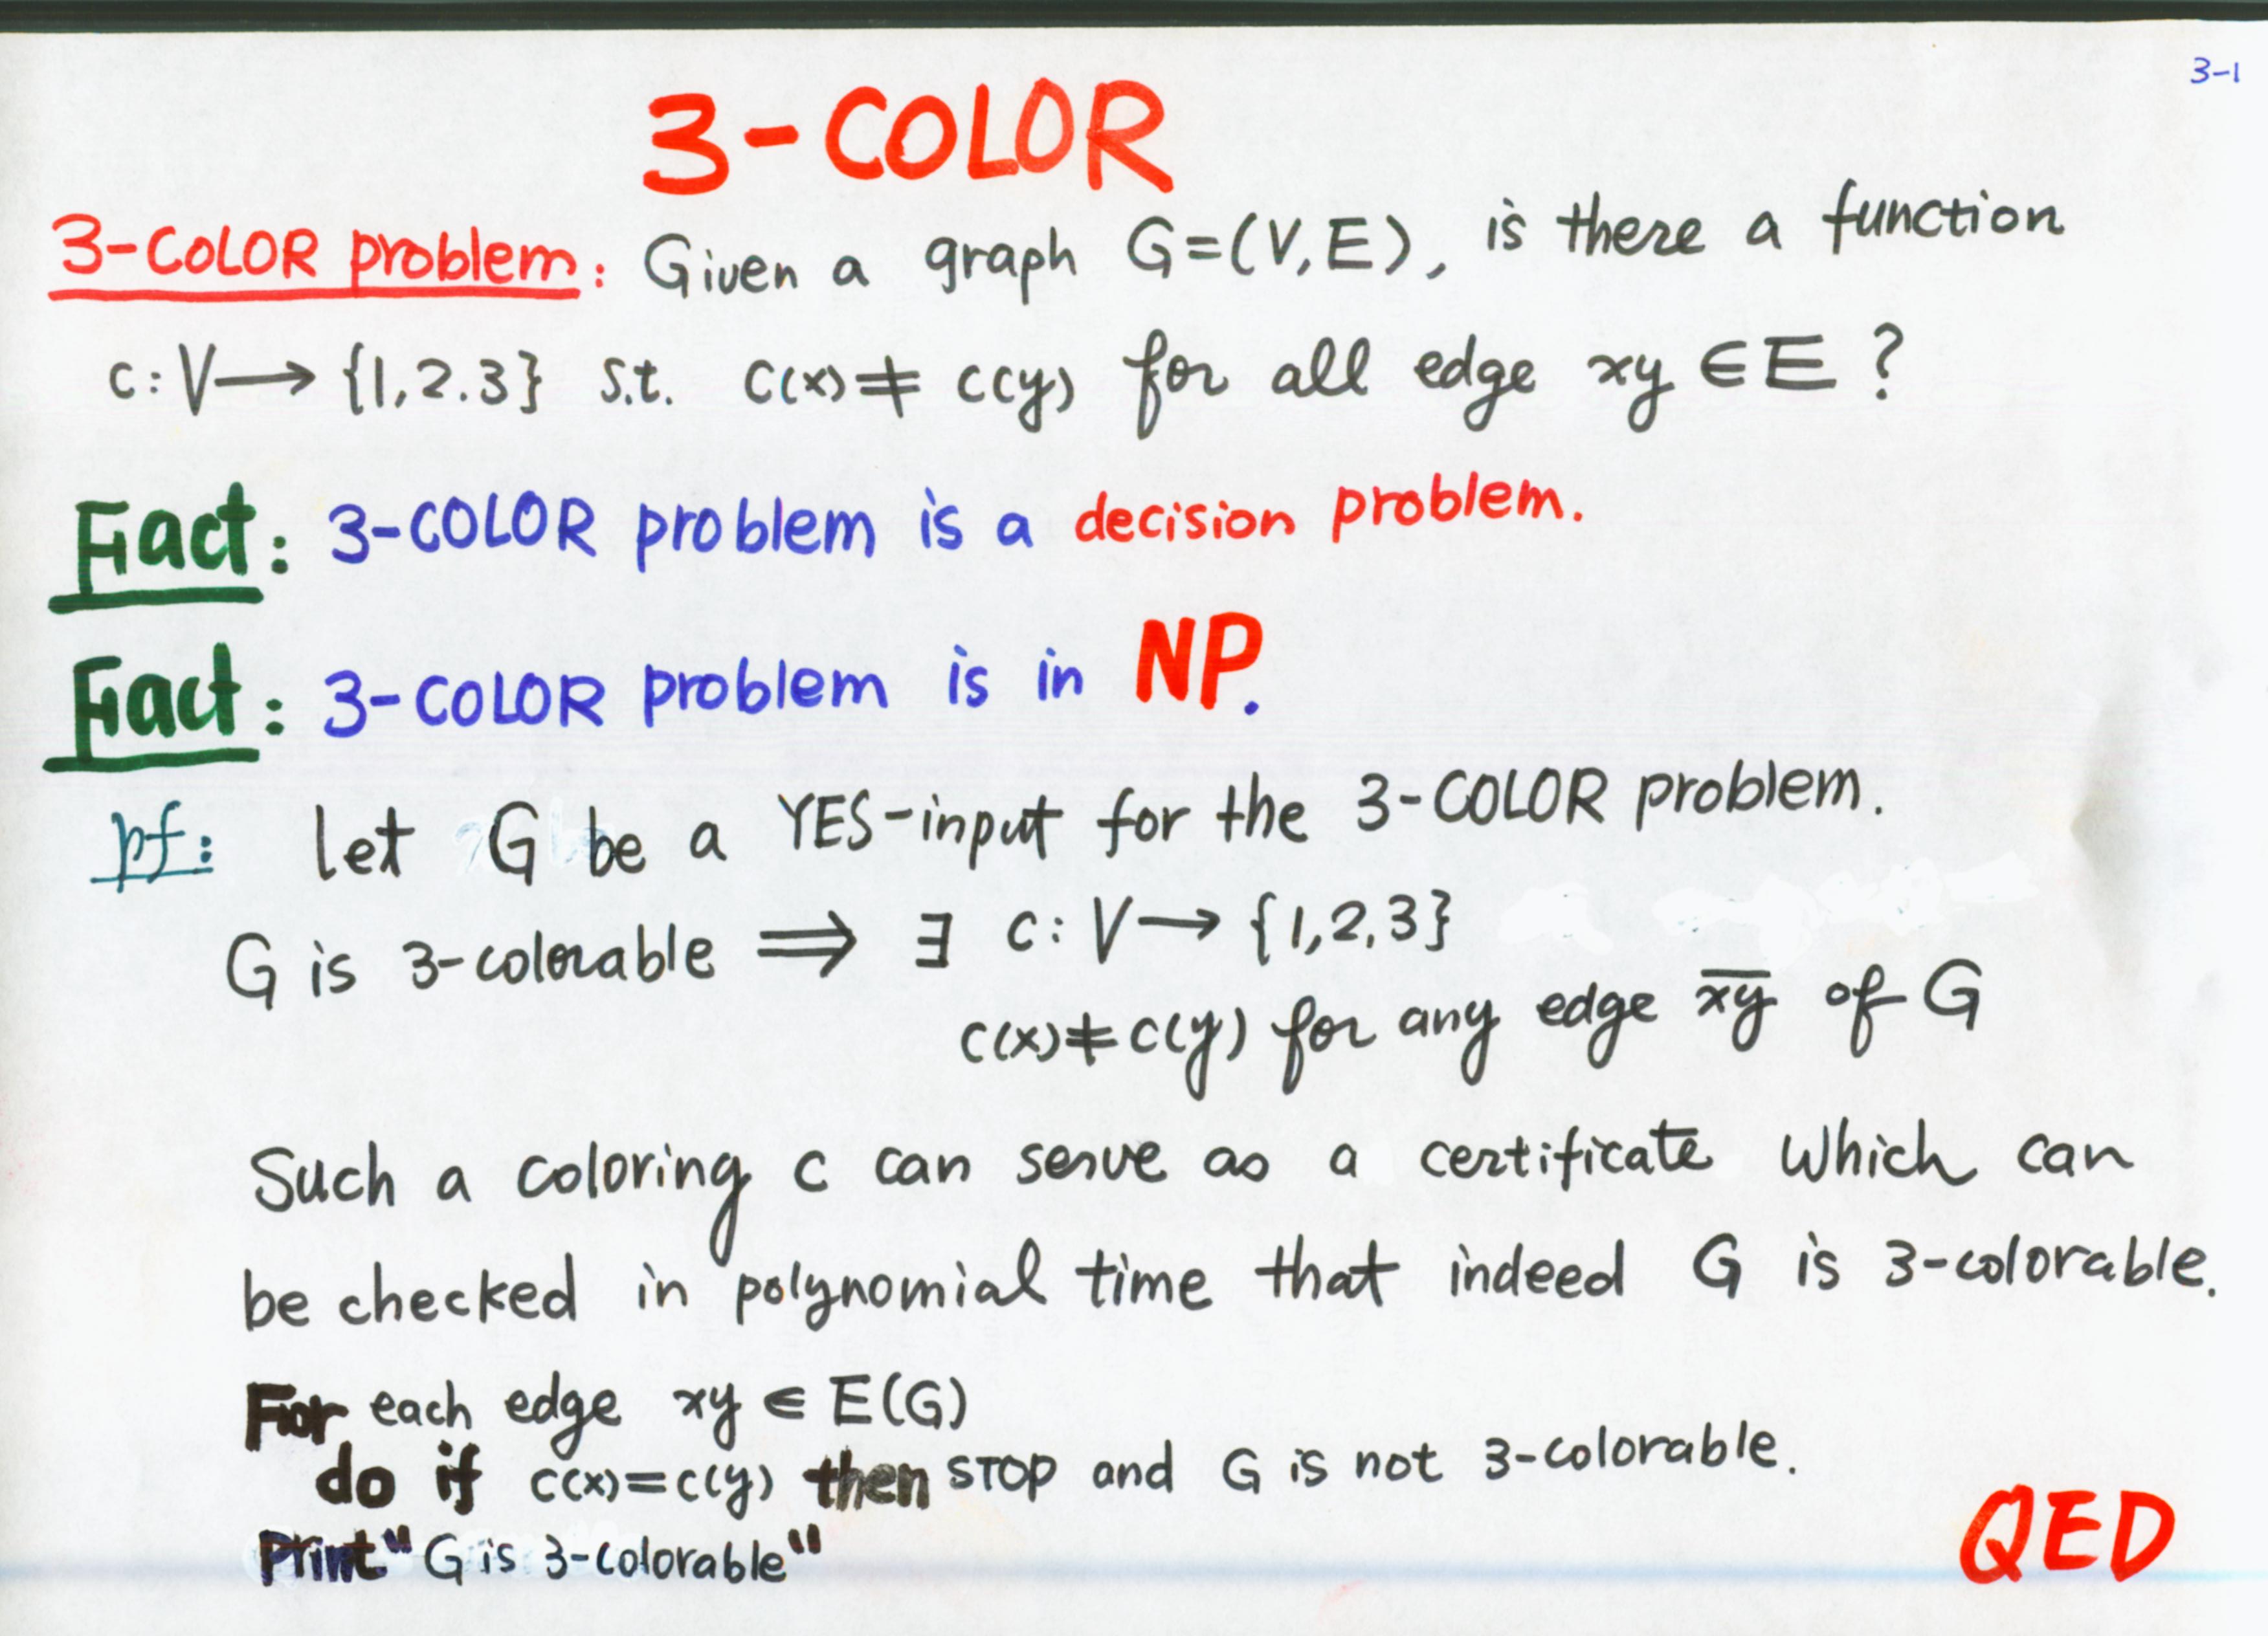 3-1
3-COLOR
3-COLOR problem: Given a graph G=(V,E), is there a function
c:V⟶{1,2.3} s.t. c(x)≠c(y) for all edge xy∈E?
Fact: 3-COLOR problem is a decision problem.
Fact: 3-COLOR problem is in NP.
pf: let G be a YES-input for the 3-COLOR problem.
G is 3-colorable ⟹ ∃ c: V⟶{1,2,3}
c(x)≠c(y) for any edge x̅y̅ of G
Such a coloring c can serve as a certificate which can
be checked in polynomial time that indeed G is 3-colorable.
For each edge xy∈E(G)
do if c(x)=c(y) then STOP and G is not 3-colorable.
Print "G is 3-colorable"
QED